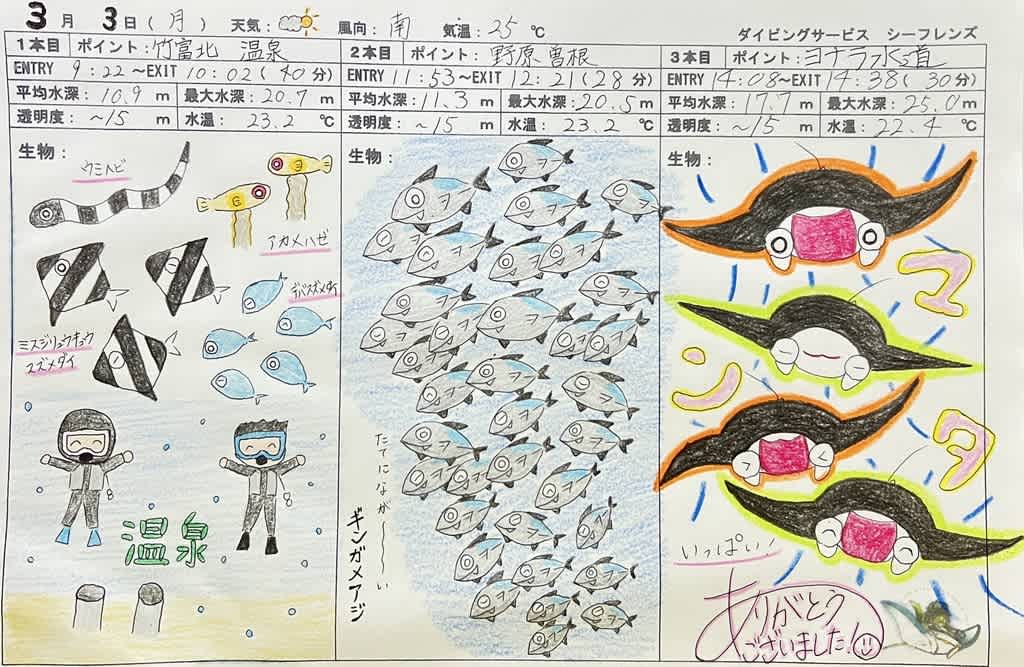 3月 3日(月) 天気: 風向: 南 気温: 25℃
ダイビングサービス シーフレンズ
1本目 ポイント: 竹富北 温泉
ENTRY 9:22～EXIT 10:02(40分)
平均水深: 10.9 m 最大水深: 20.7 m
透明度: ～15 m 水温: 23.2 ℃
生物:
ウミヘビ
アカメハゼ
デバスズメダイ
ミスジリュウキュウ
スズメダイ
温泉
2本目 ポイント: 野原曽根
ENTRY 11:53～EXIT 12:21(28分)
平均水深: 11.3 m 最大水深: 20.5 m
透明度: ～15 m 水温: 23.2 ℃
生物:
たてになが～～い
ギンガメアジ
3本目 ポイント: ヨナラ水道
ENTRY 14:08～EXIT 14:38(30分)
平均水深: 17.7 m 最大水深: 25.0 m
透明度: ～15 m 水温: 22.4 ℃
生物:
マンタ
いっぱい!
ありがとう
ございました!